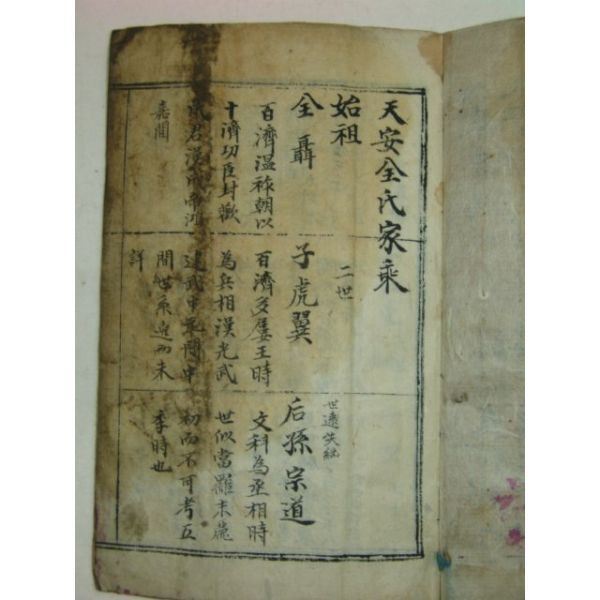 天安全氏家乘
始祖
全聶
百濟溫祚朝以
十濟功臣封歡
城君漢成帝鴻
嘉間
二世
子虎翼
百濟多婁王時
為兵相漢光武
建武中
間世系逸而未
詳
世遠失紀
后孫宗道
文科為丞相時
世似當羅末麗
初而不可考五
季時也